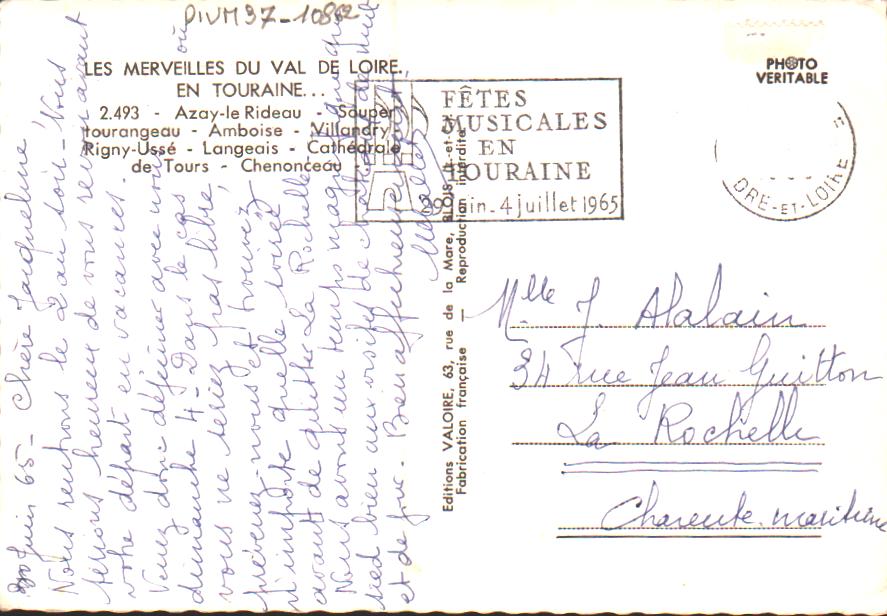 DIVM37-10862
LES MERVEILLES DU VAL DE LOIRE.,
EN TOURAINE...
2.493 - Azay-le Rideau - Souper
tourangeau - Amboise - Villandry
Rigny-Ussé - Langeais - Cathédrale
de Tours - Chenonceau -
PHOTO
VERITABLE
FÊTES
MUSICALES
EN
TOURAINE
29 juin - 4 juillet 1965
DRE-ET-LOIRE
Juin 65 - Chère Jacqueline
Nous rentrons le 2 au soir - Nous
serions heureux de vous revoir avant
votre départ en vacances.
Venez donc déjeuner avec nous
dimanche 4 - Dans le cas où
vous ne seriez pas libre,
prévenez-nous et trouvez
n'importe quelle soirée
avant de quitter La Rochelle
Nous avons un temps magnifique qui
sied bien aux visites de châteaux de nuit
et de jour. Bien affectueusement
Editions VALOIRE, 63, rue de la Mare, BLOIS (L.-et-C.)
Fabrication française — Reproduction interdite
Mlle J. Alalain
34 rue Jean Guitton
La Rochelle
Charente-maritime